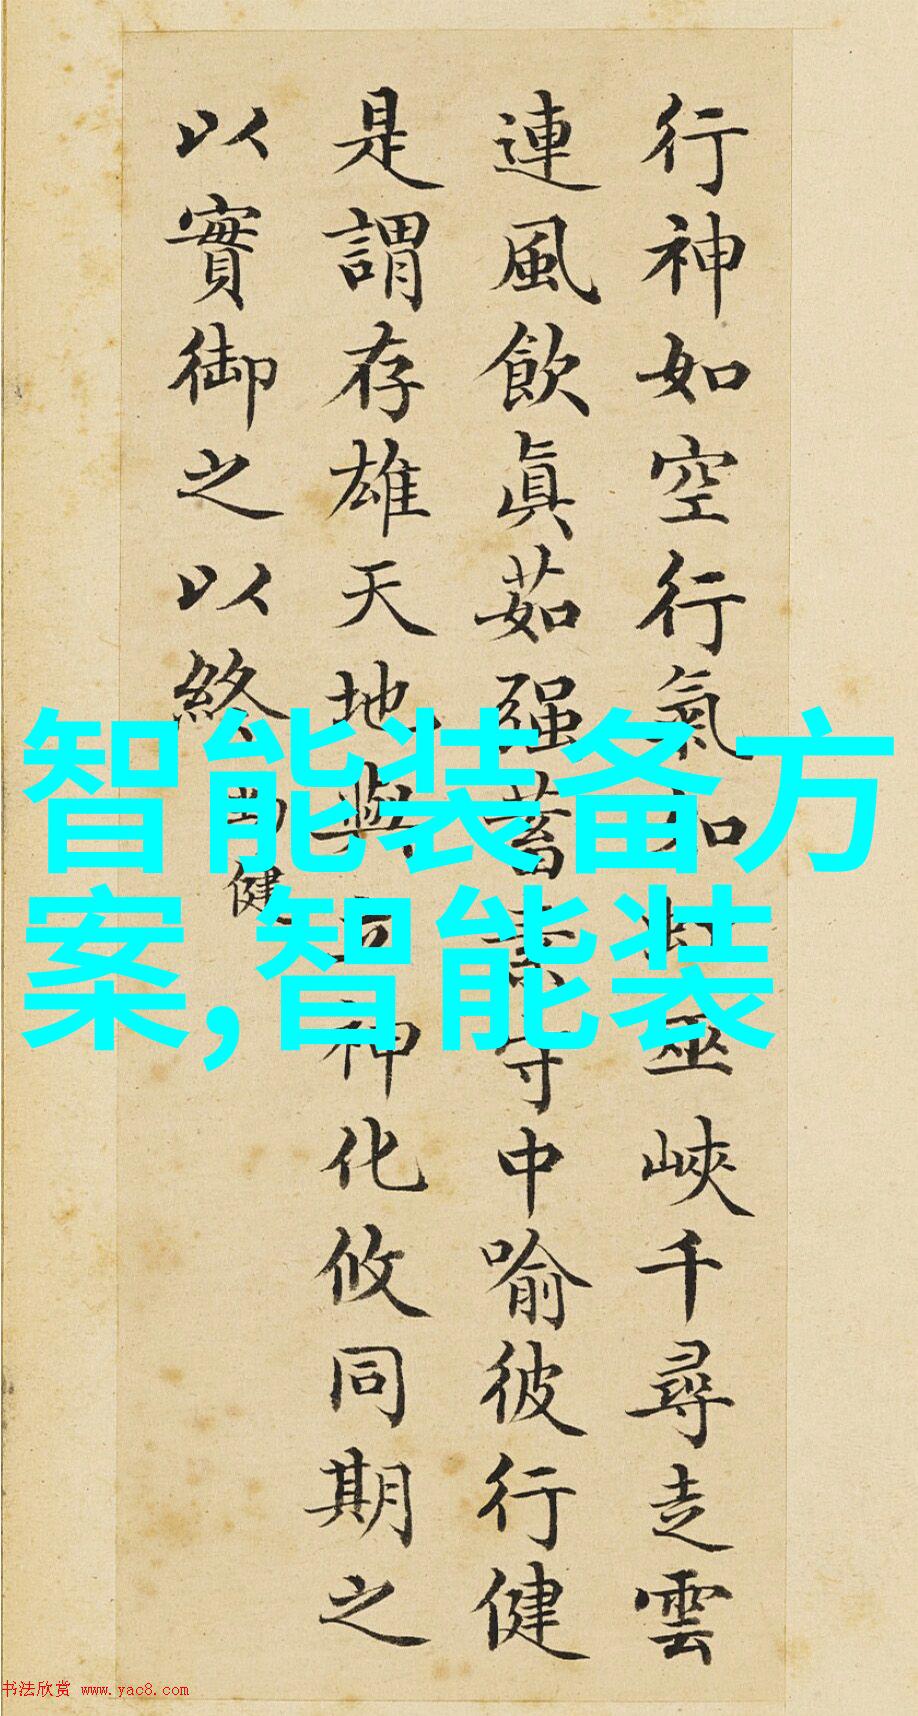 行神如空行氣如虹巫峽千尋走雲
連風飲眞茹强蓄素守中喻彼行健
是謂存雄天地與立神化攸同期之
以實御之以終 勁健
智能装备方
案,智能装
书法欣赏 www.yac8.com